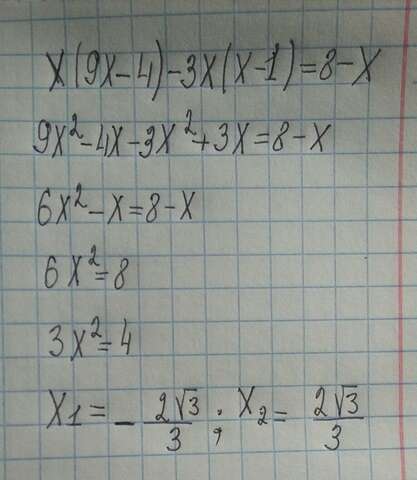 x(9x-4)-3x(x-1)=8-x
9x²-4x-3x²+3x=8-x
6x²-x=8-x
6x²=8
3x²=4
x₁=-2√3/3; x₂=2√3/3